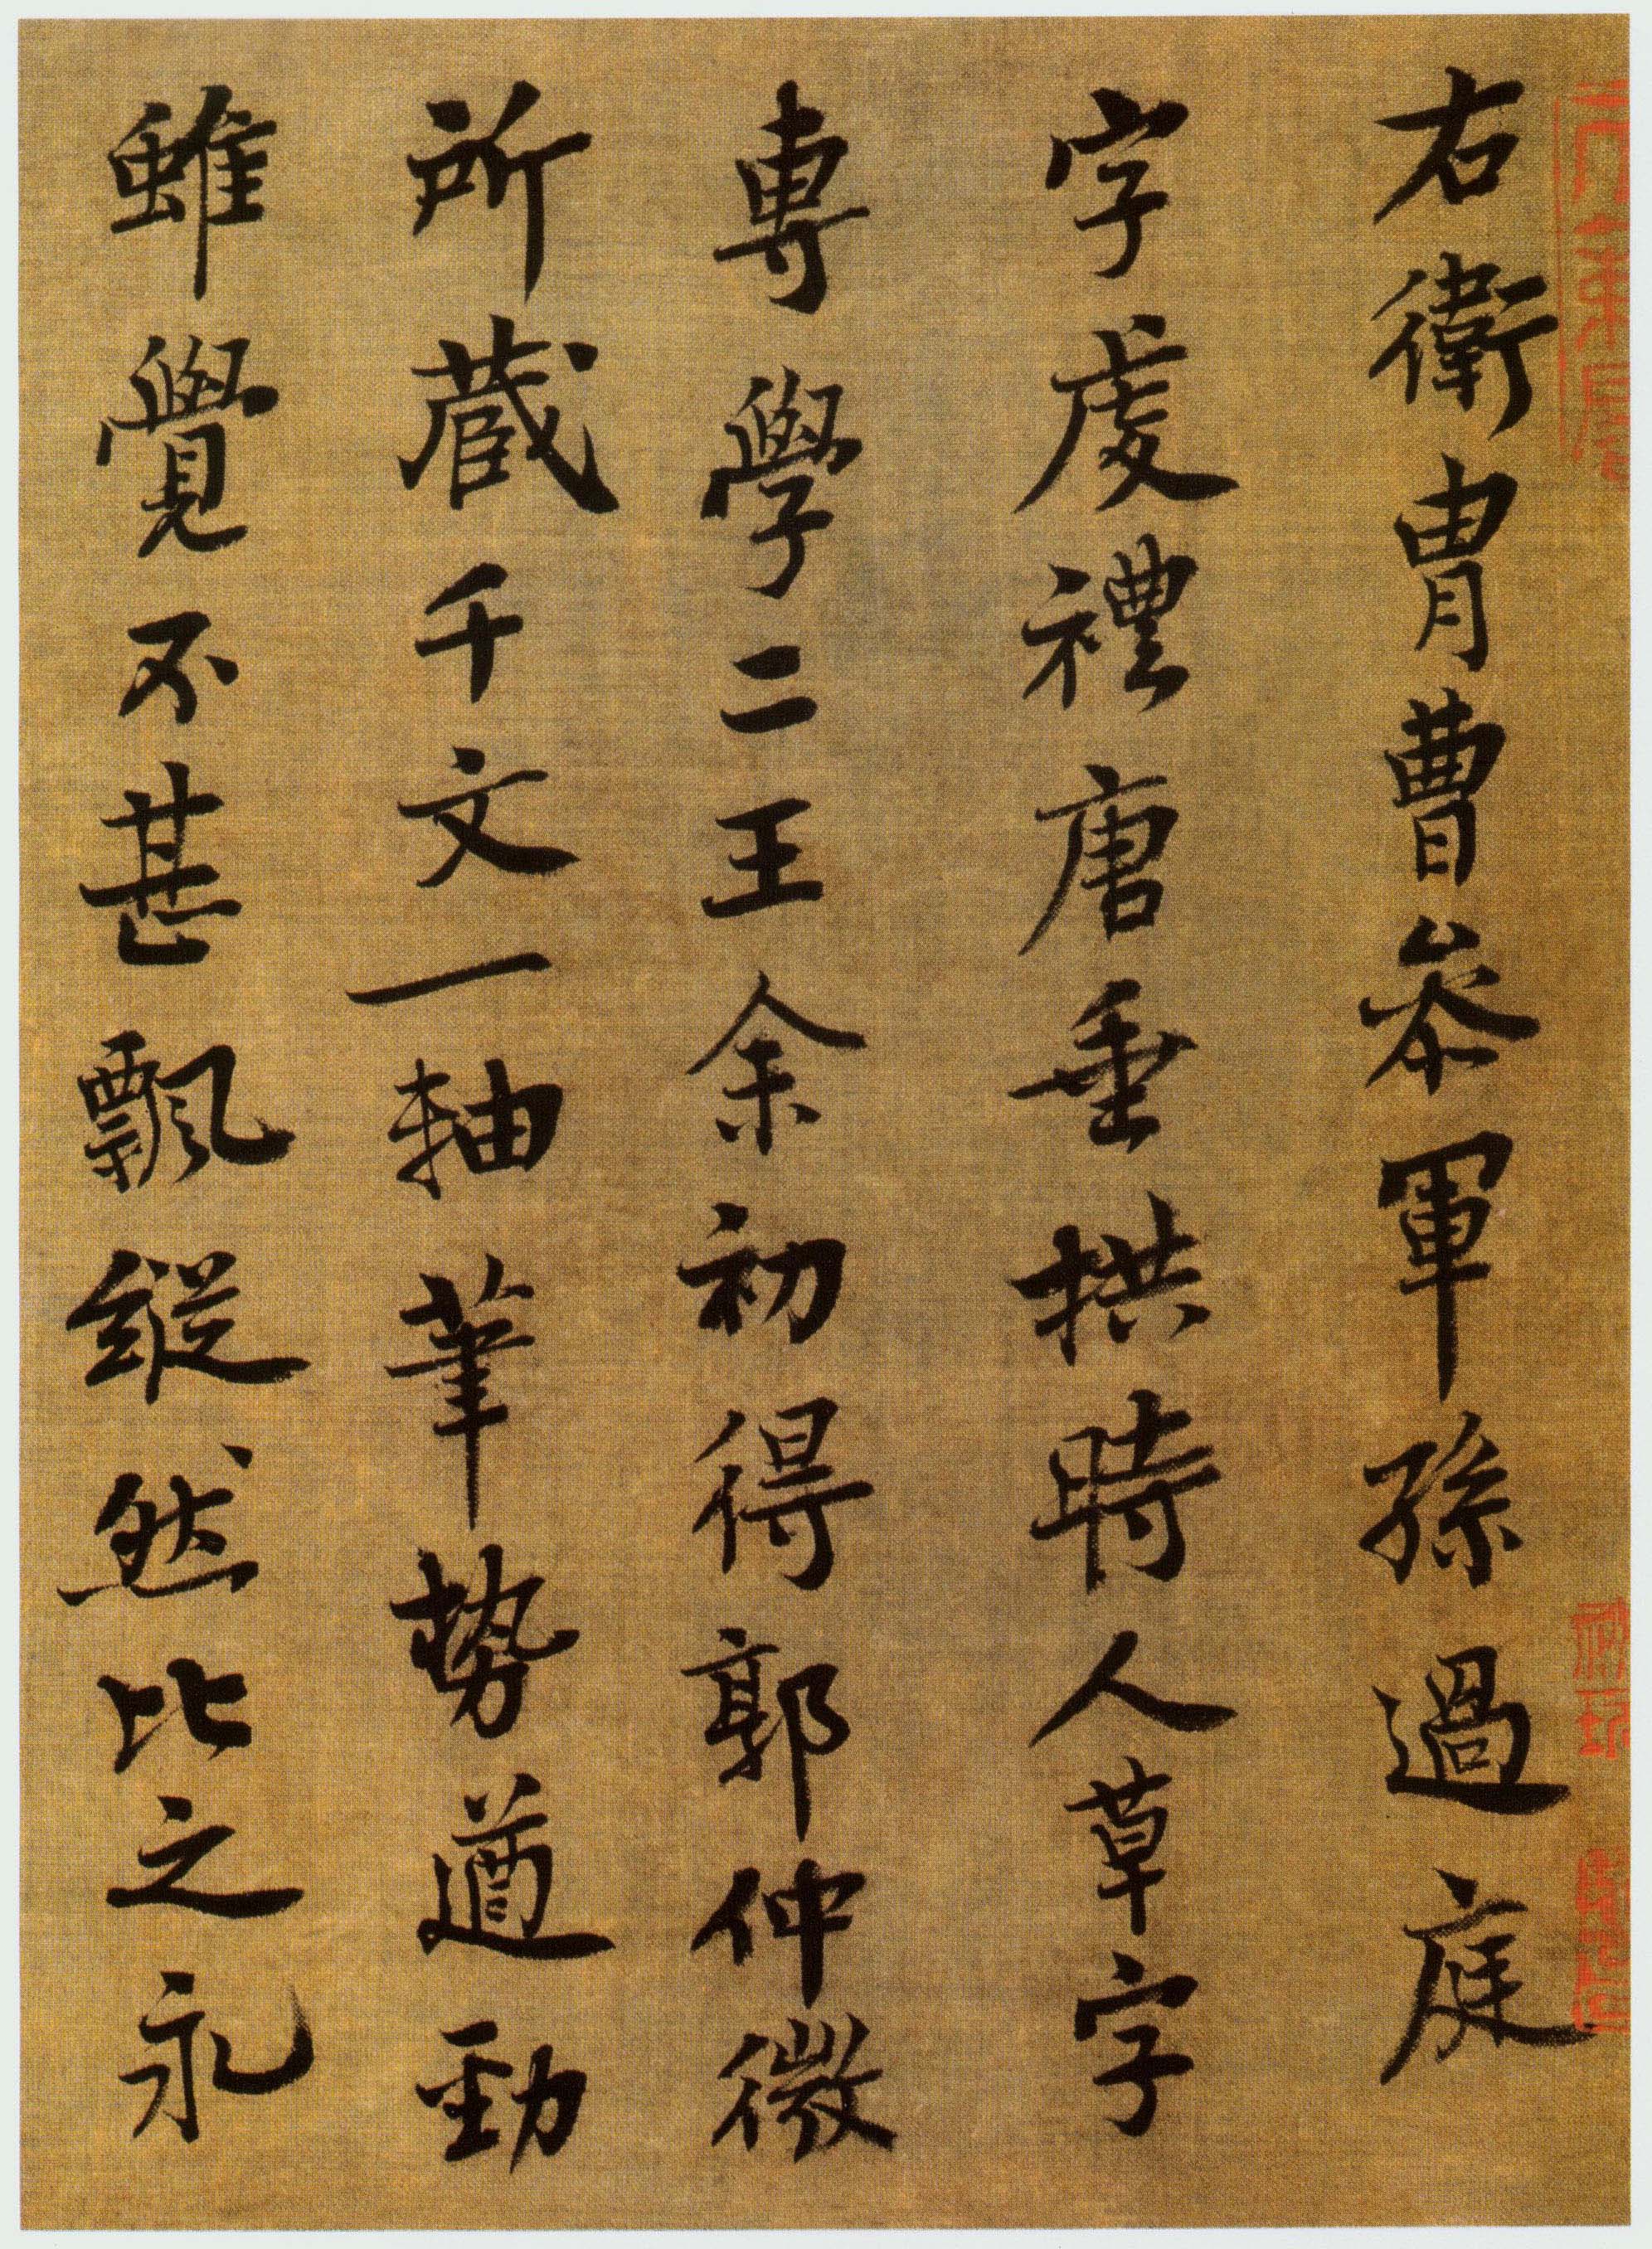 右衛胄曹叅軍孫過庭
字虔禮唐垂拱時人草字
專學二王余初得郭仲微
所藏千文一軸筆勢遒勁
雖覺不甚飄縱然比之永